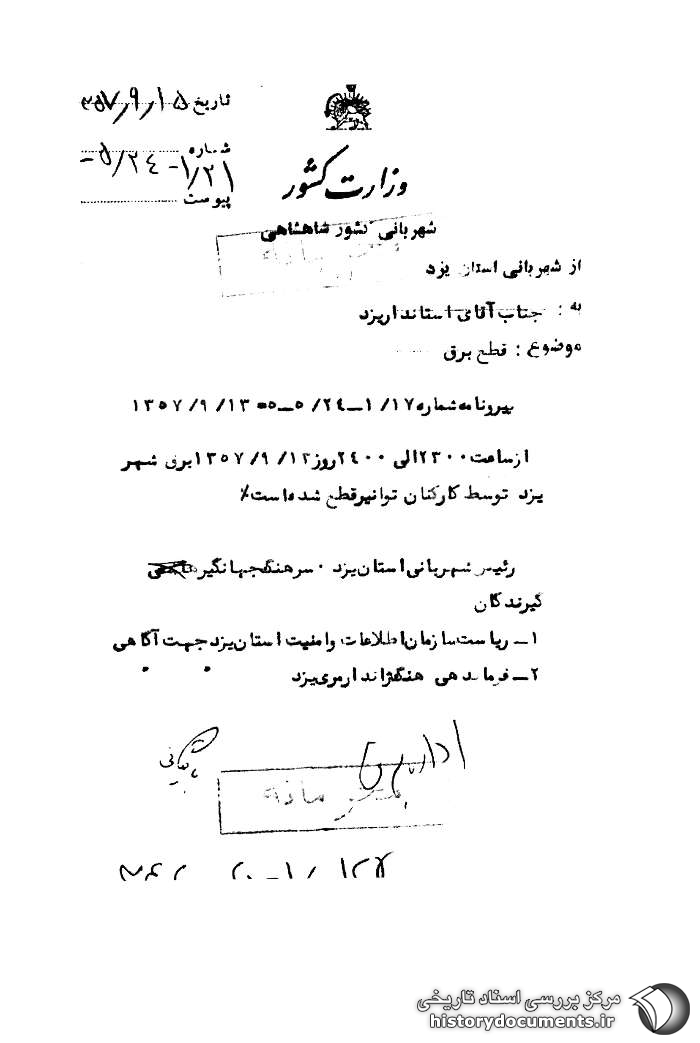 تاریخ ۳۵۷/۹/۱۵
شماره ۵/۲٤-۱/۲۱-
پیوست
وزارت کشور
شهربانی کشور شاهنشاهی
محرمانه
از شهربانی استان یزد
به : جناب آقای استاندار یزد
موضوع : قطع برق
پیرو نامه شماره ۱/۱۷ـ۲٤/ ۵ـ۵ ۱۳ /۹ /۱۳۵۷
از ساعت ۲۳۰۰ الی ۲٤۰۰ روز ۱۲/ ۹/ ۱۳۵۷ برق شهر
یزد توسط کارکنان توانیر قطع شده است٪
رئیس شهربانی استان یزد . سرهنگ جهانگیر
گیرندگان
۱ـ ریاست سازمان اطلاعات و امنیت استان یزد جهت آگاهی
۲ـ فرماندهی هنگ ژاندارمری یزد
محرمانه
مرکز بررسی اسناد تاریخی
historydocuments.ir